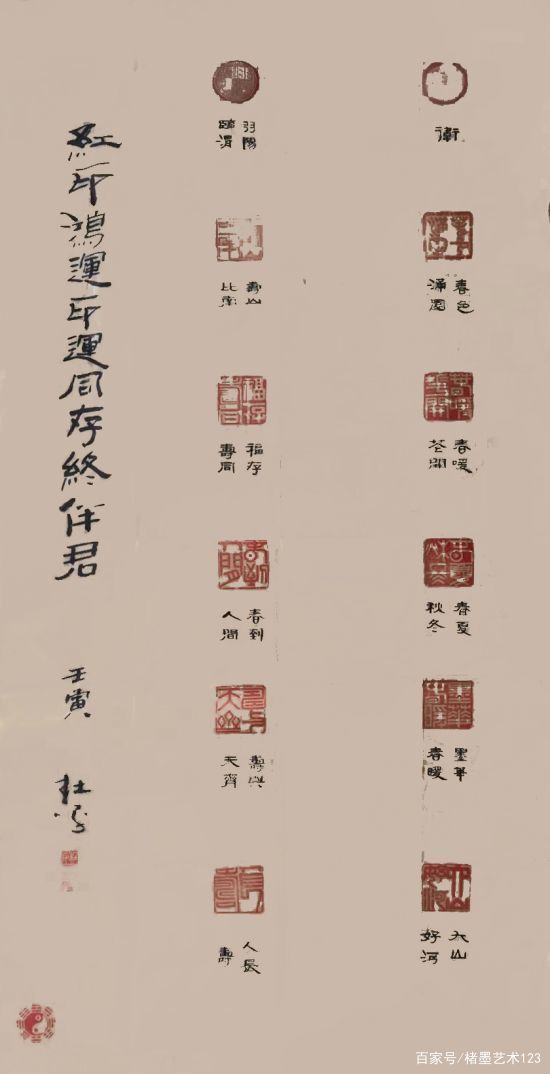 衛
春色
滿園
春暖
花開
春夏
秋冬
墨華
春暖
山
好河
羽陽
臨渭
壽山
比南
福存
壽同
春到
人間
壽與
天齊
人長
壽
紅印鴻運印運同存終伴君
壬寅
杜
百家号/楮墨艺术123